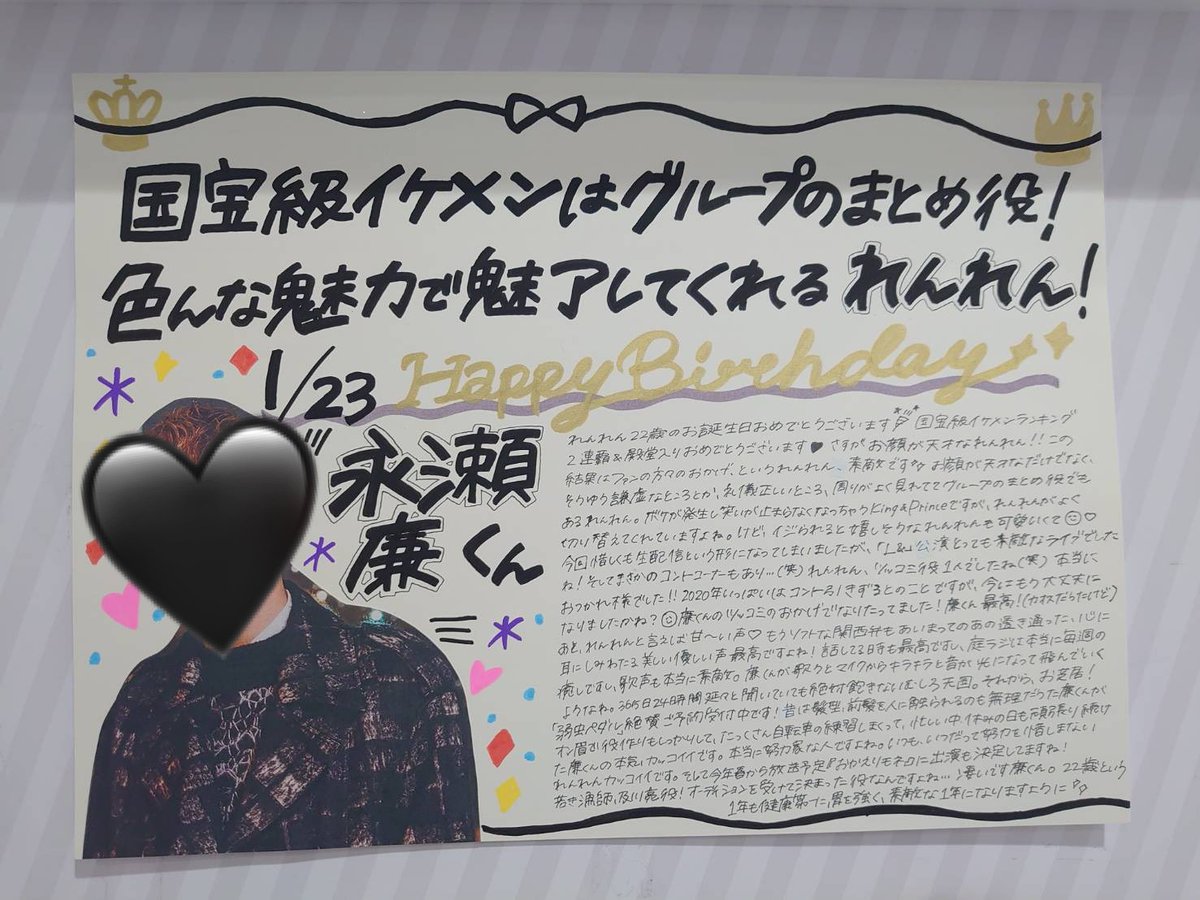 国宝級イケメンはグループのまとめ役!
色んな魅力で魅了してくれるれんれん!
1/23
Happy Birthday
永瀬
廉くん
れんれん22歳のお誕生日おめでとうございます 国宝級イケメンランキング
2連覇&殿堂入りおめでとうございます♥ さすがお顔が天才なれんれん!!この
結果はファンの方々のおかげ、というれんれん、素敵です お顔が天才なだけでなく、
そうゆう謙虚なところとか、礼儀正しいところ、周りがよく見れててグループのまとめ役でも
あるれんれん。ボケが発生し笑いが止まらなくなっちゃうKing&Princeですが、れんれんがよく
切り替えてくれていますよね。けど、イジられると嬉しそうなれんれんも可愛いくて♡
今回惜しくも生配信という形になってしまいましたが、「L&」公演とっても素敵なライブでした
ね!そしてまさかのコントコーナーもあり…(笑)れんれん、ツッコミ役1人でしたね(笑)本当に
おつかれ様でした!!2020年いっぱいはコントろ!きずるとのことですが、今はもう大丈夫に
なりましたかね?廉くんのツッコミのおかげでなりたってました!廉くん最高!(カオスだらだったけど)
あと、れんれんと言えば甘〜い声♡もうソフトな関西弁もあいまってのあの透き通った、心に
耳にしみわたる美しい優しい声最高ですよね!話してる時も最高ですし、庭ラジは本当に毎週の
癒しですし、歌声も本当に素敵。廉くんが歌うとマイクからキラキラと音が光になって飛んでいく
ようよね。365日24時間延々と聞いていても絶対飽きないむしろ天国。それから、お芝居!
「弱虫ペダル」絶賛ご予約受付中です!昔は髪型、前髪を人に触られるのも無理だった廉くんが
オン眉で役作りもしっかりして、たっくさん自転車の練習しまくって、忙しい中、休みの日も頑張り続け
た廉くんの本気、カッコイイです。本当に努力家な人ですよね。いつも、いつだって努力を惜しまない
れんれんカッコイイです。そして今年春から放送予定『おかえりモネ』に出演も決定してますね!
若き漁師、及川亮役!オーディションを受けて決まった役なんですよね…凄いです廉くん。22歳という
1年も健康第一に、胃を強く、素敵な1年になりますように